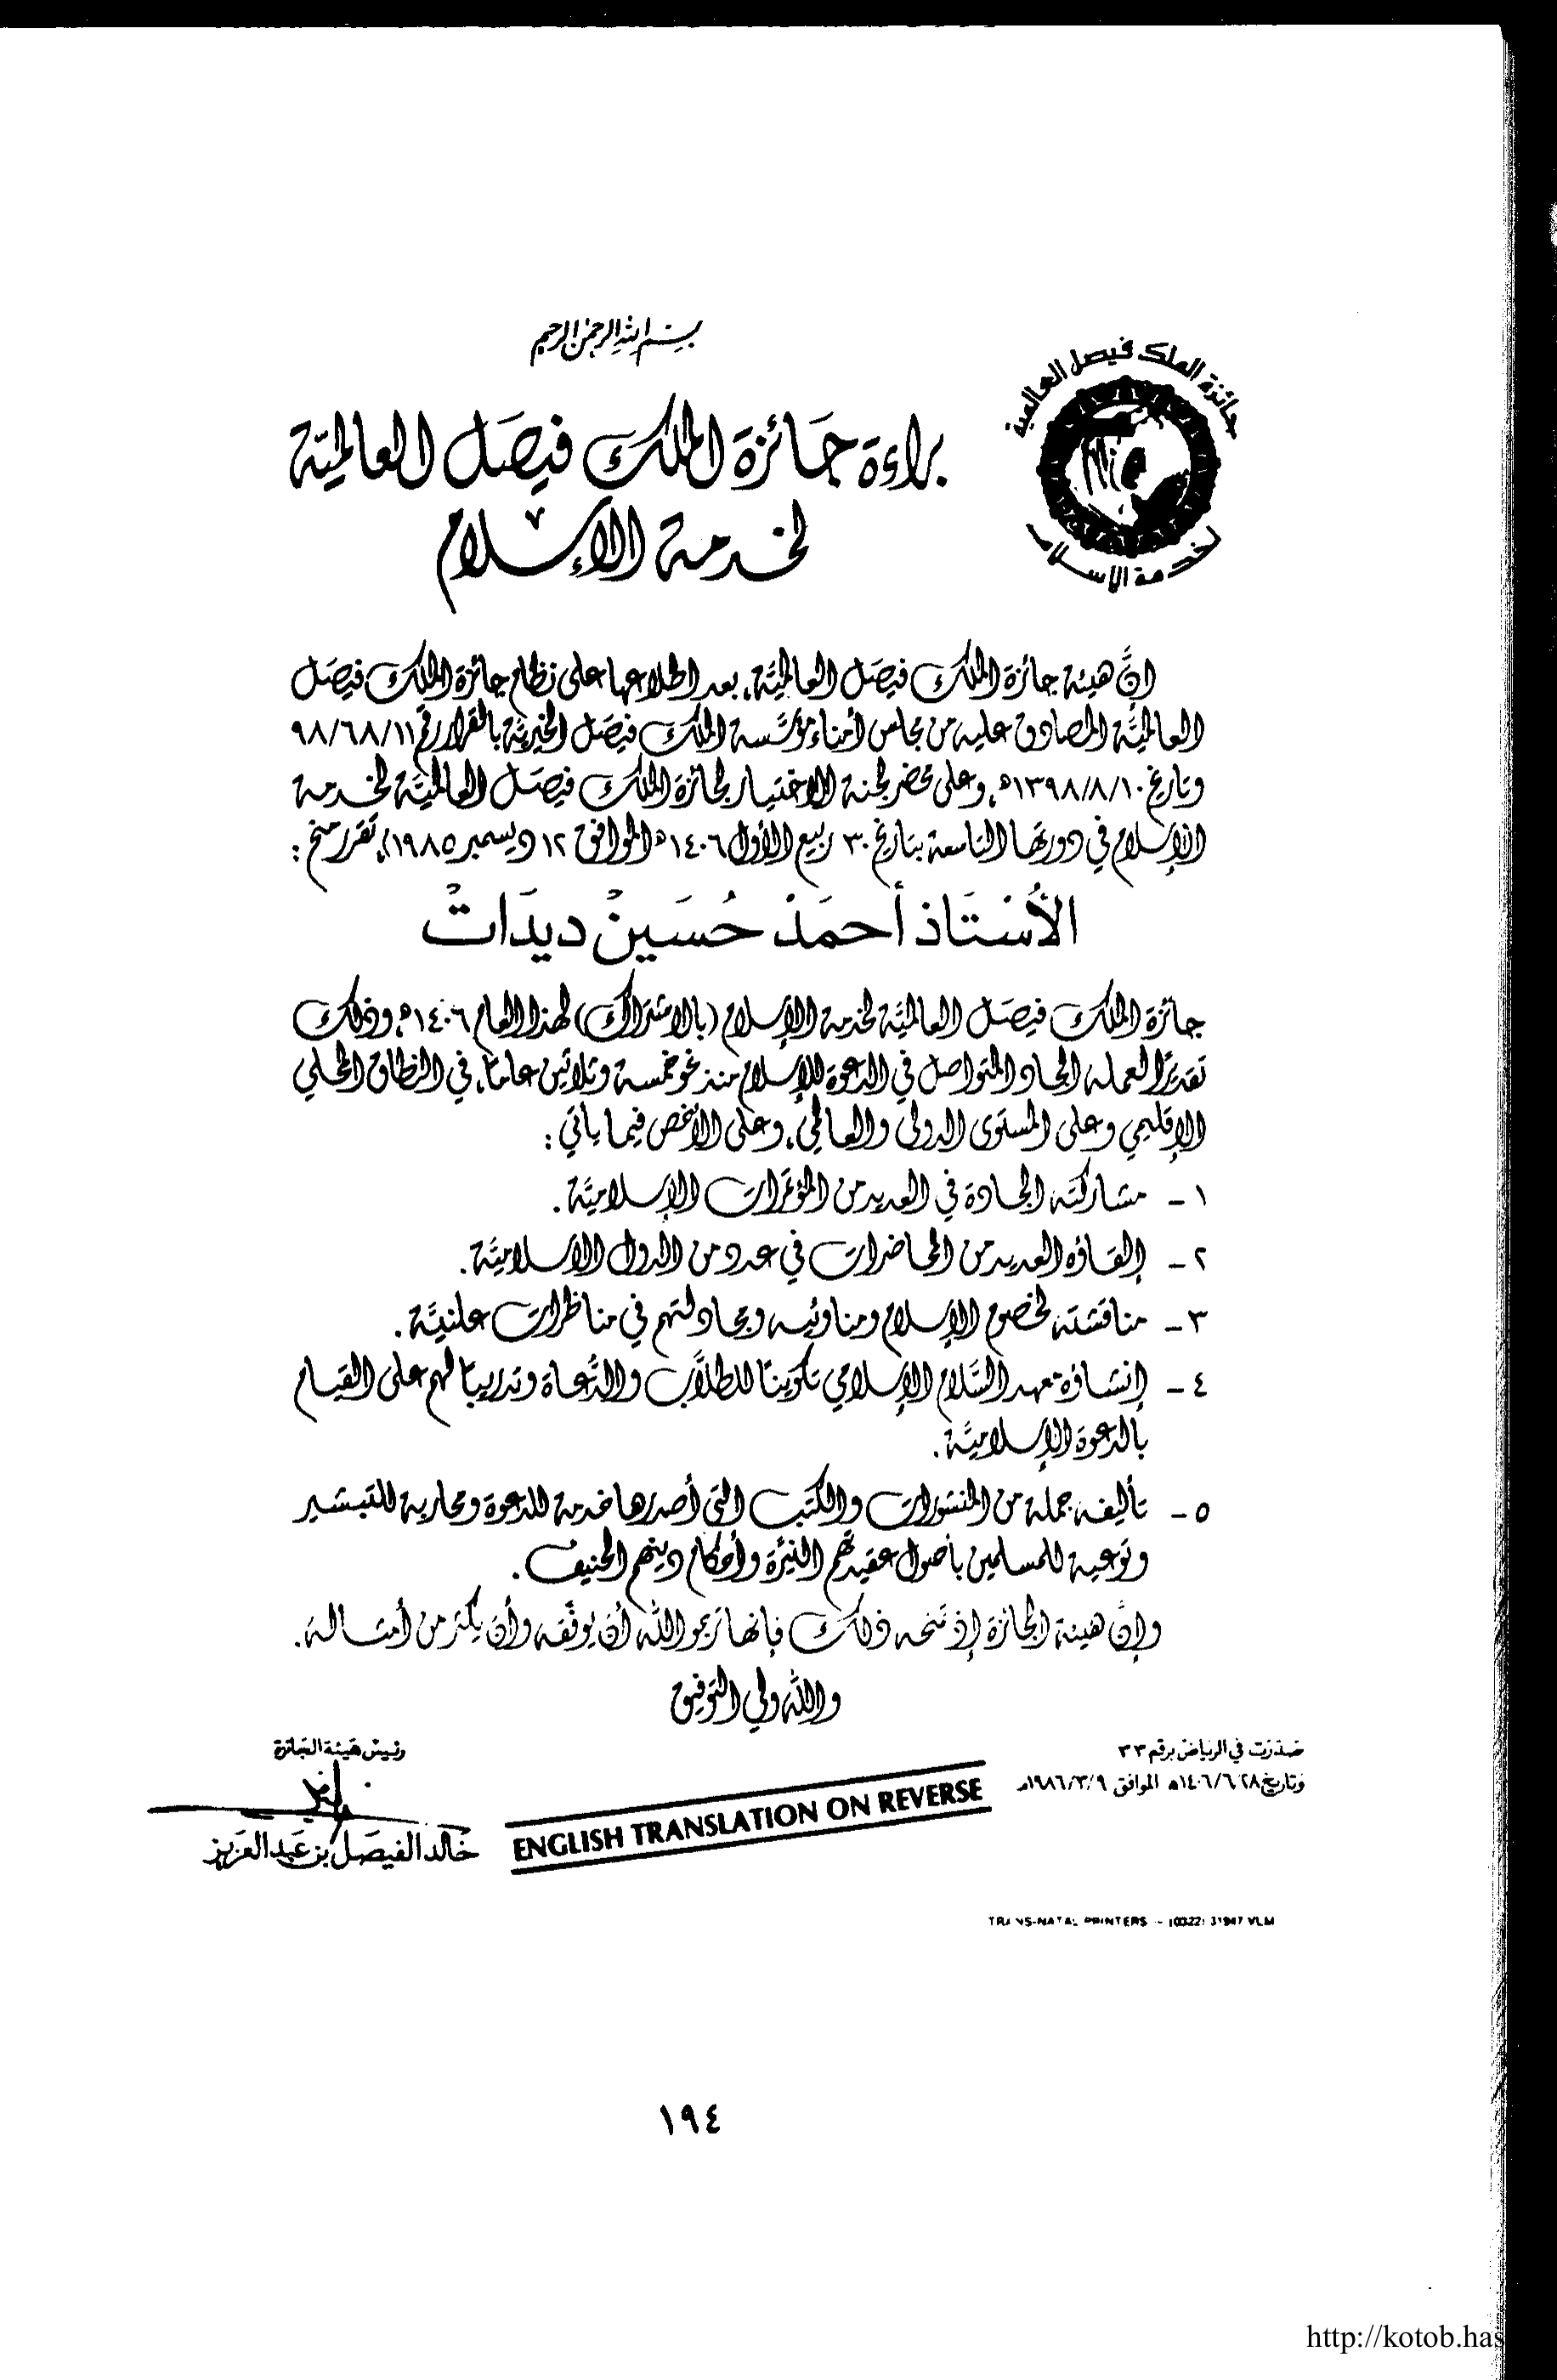 بسم الله الرحمن الرحيم
جائزة الملك فيصل العالمية
لخدمة الإسلام
براءة جَائزة الملك فيصَل العالميّة
لخدمة الإسلام
إنَّ هيئة جائزة الملك فيصَل العالميَّة، بعد اطلاعها على نظام جائزة الملك فيصَل
العالميَّة المصادق عليه من مجلس أمناء مؤسَّسة الملك فيصَل الخيريَّة بالقرار رقم ٩٨/٦٨/١١
وتاريخ ١٣٩٨/٨/١٠ه، وعلى محضر لجنة الاختيار لجائزة الملك فيصَل العالميَّة لخدمة
الإسلام في دورتها التاسعة بتاريخ ٣٠ ربيع الأول ١٤٠٦ه الموافق ١٢ ديسمبر ١٩٨٥م، تقرر منح :
الأسْتَاذ أحمَدْ حُسَينْ ديدَاتْ
جائزة الملك فيصَل العالميَّة لخدمة الإسلام (بالاشتراك) لهذا العام ١٤٠٦ه، وذلك
تقديرًا لعمله الجاد المتواصل في الدعوة للإسلام منذ نحو خمسة وثلاثين عامًا، في النطاق المحلي
الإقليمي وعلى المستوى الدولي والعالمي، وعلى الأخص فيما يأتي :
١ - مشاركته الجادة في العديد من المؤتمرات الإسلاميَّة.
٢ - إلقاؤه العديد من المحاضرات في عدد من الدول الاسلاميَّة.
٣ - مناقشته لخصوم الإسلام ومناوئيه ومجادلتهم في مناظرات علنيَّة.
٤ - إنشاؤه معهد السَّلام الإسلامي تكوينًا للطلاَّب والدُّعاة وتدريبًا لهم على القيام
بالدعوة الإسلاميَّة.
٥ - تأليفه جملة من المنشورات والكتب التي أصدرها خدمة للدعوة ومحاربة للتبشير
وتوعية للمسلمين بأصول عقيدتهم النيّرة وأحكام دينهم الحنيف.
وإنَّ هيئة الجائزة إذ تمنحه ذلك فإنها ترجو الله أن يوفّقه وأن يكثر من أمثاله.
والله ولي التوفيق
صَدَرَت في الرياض برقم ٣٣
وتاريخ ١٤٠٦/٦/٢٨ه الموافق ١٩٨٦/٣/٩م
رئيس هَيئة الجَائزة
خَالد الفيصَل بن عَبد العَزيز
ENGLISH TRANSLATION ON REVERSE
TRANS-NATAL PRINTERS - (0322) 31947 VLM
١٩٤
http://kotob.has